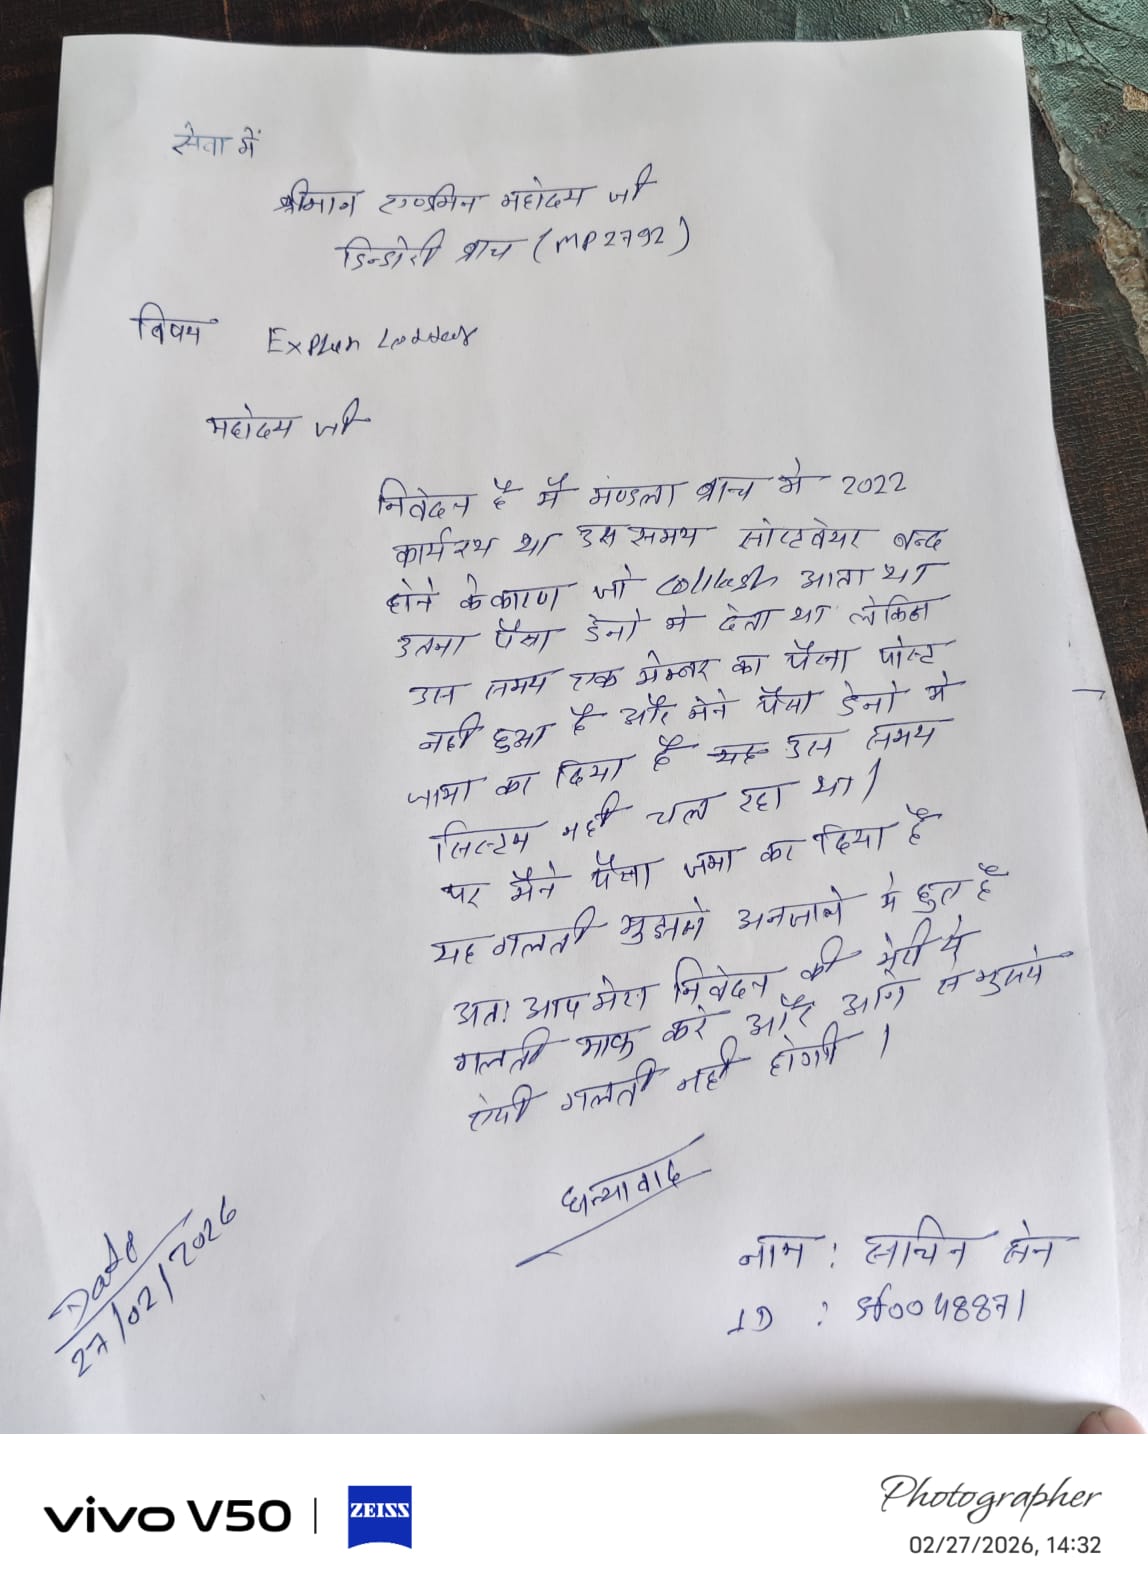 सेवा में
श्रीमान एडमिन महोदय जी
डिन्डोरी ब्राच (MP2792)
विषय Explan Ladder
महोदय जी
निवेदन है मैं मण्डला ब्राच मे 2022
कार्यरथ था उस समय सोप्टवेयर बन्द
होने के कारण जो आता था
उतना पैसा डेनो मे देता था लेकिन
उस समय एक मेम्बर का पैसा पोस्ट
नही हुआ है और मेने पैसा डेनो मे
जामा कर दिया है यह उस समय
सिस्टम नही चल रहा था।
पर मैने पैसा जमा कर दिया है
यह गलती मुझसे अनजाने मे हुत है
अतः आप मेरा निवेदन की मेरी ये
गलती माफ करे और आगे से मुझसे
ऐसी गलती नही होगी।
धन्यावाद
Date
27/02/2026
नाम : साचिन सेन
ID : Sf0048871
vivo V50 | ZEISS
Photographer
02/27/2026, 14:32